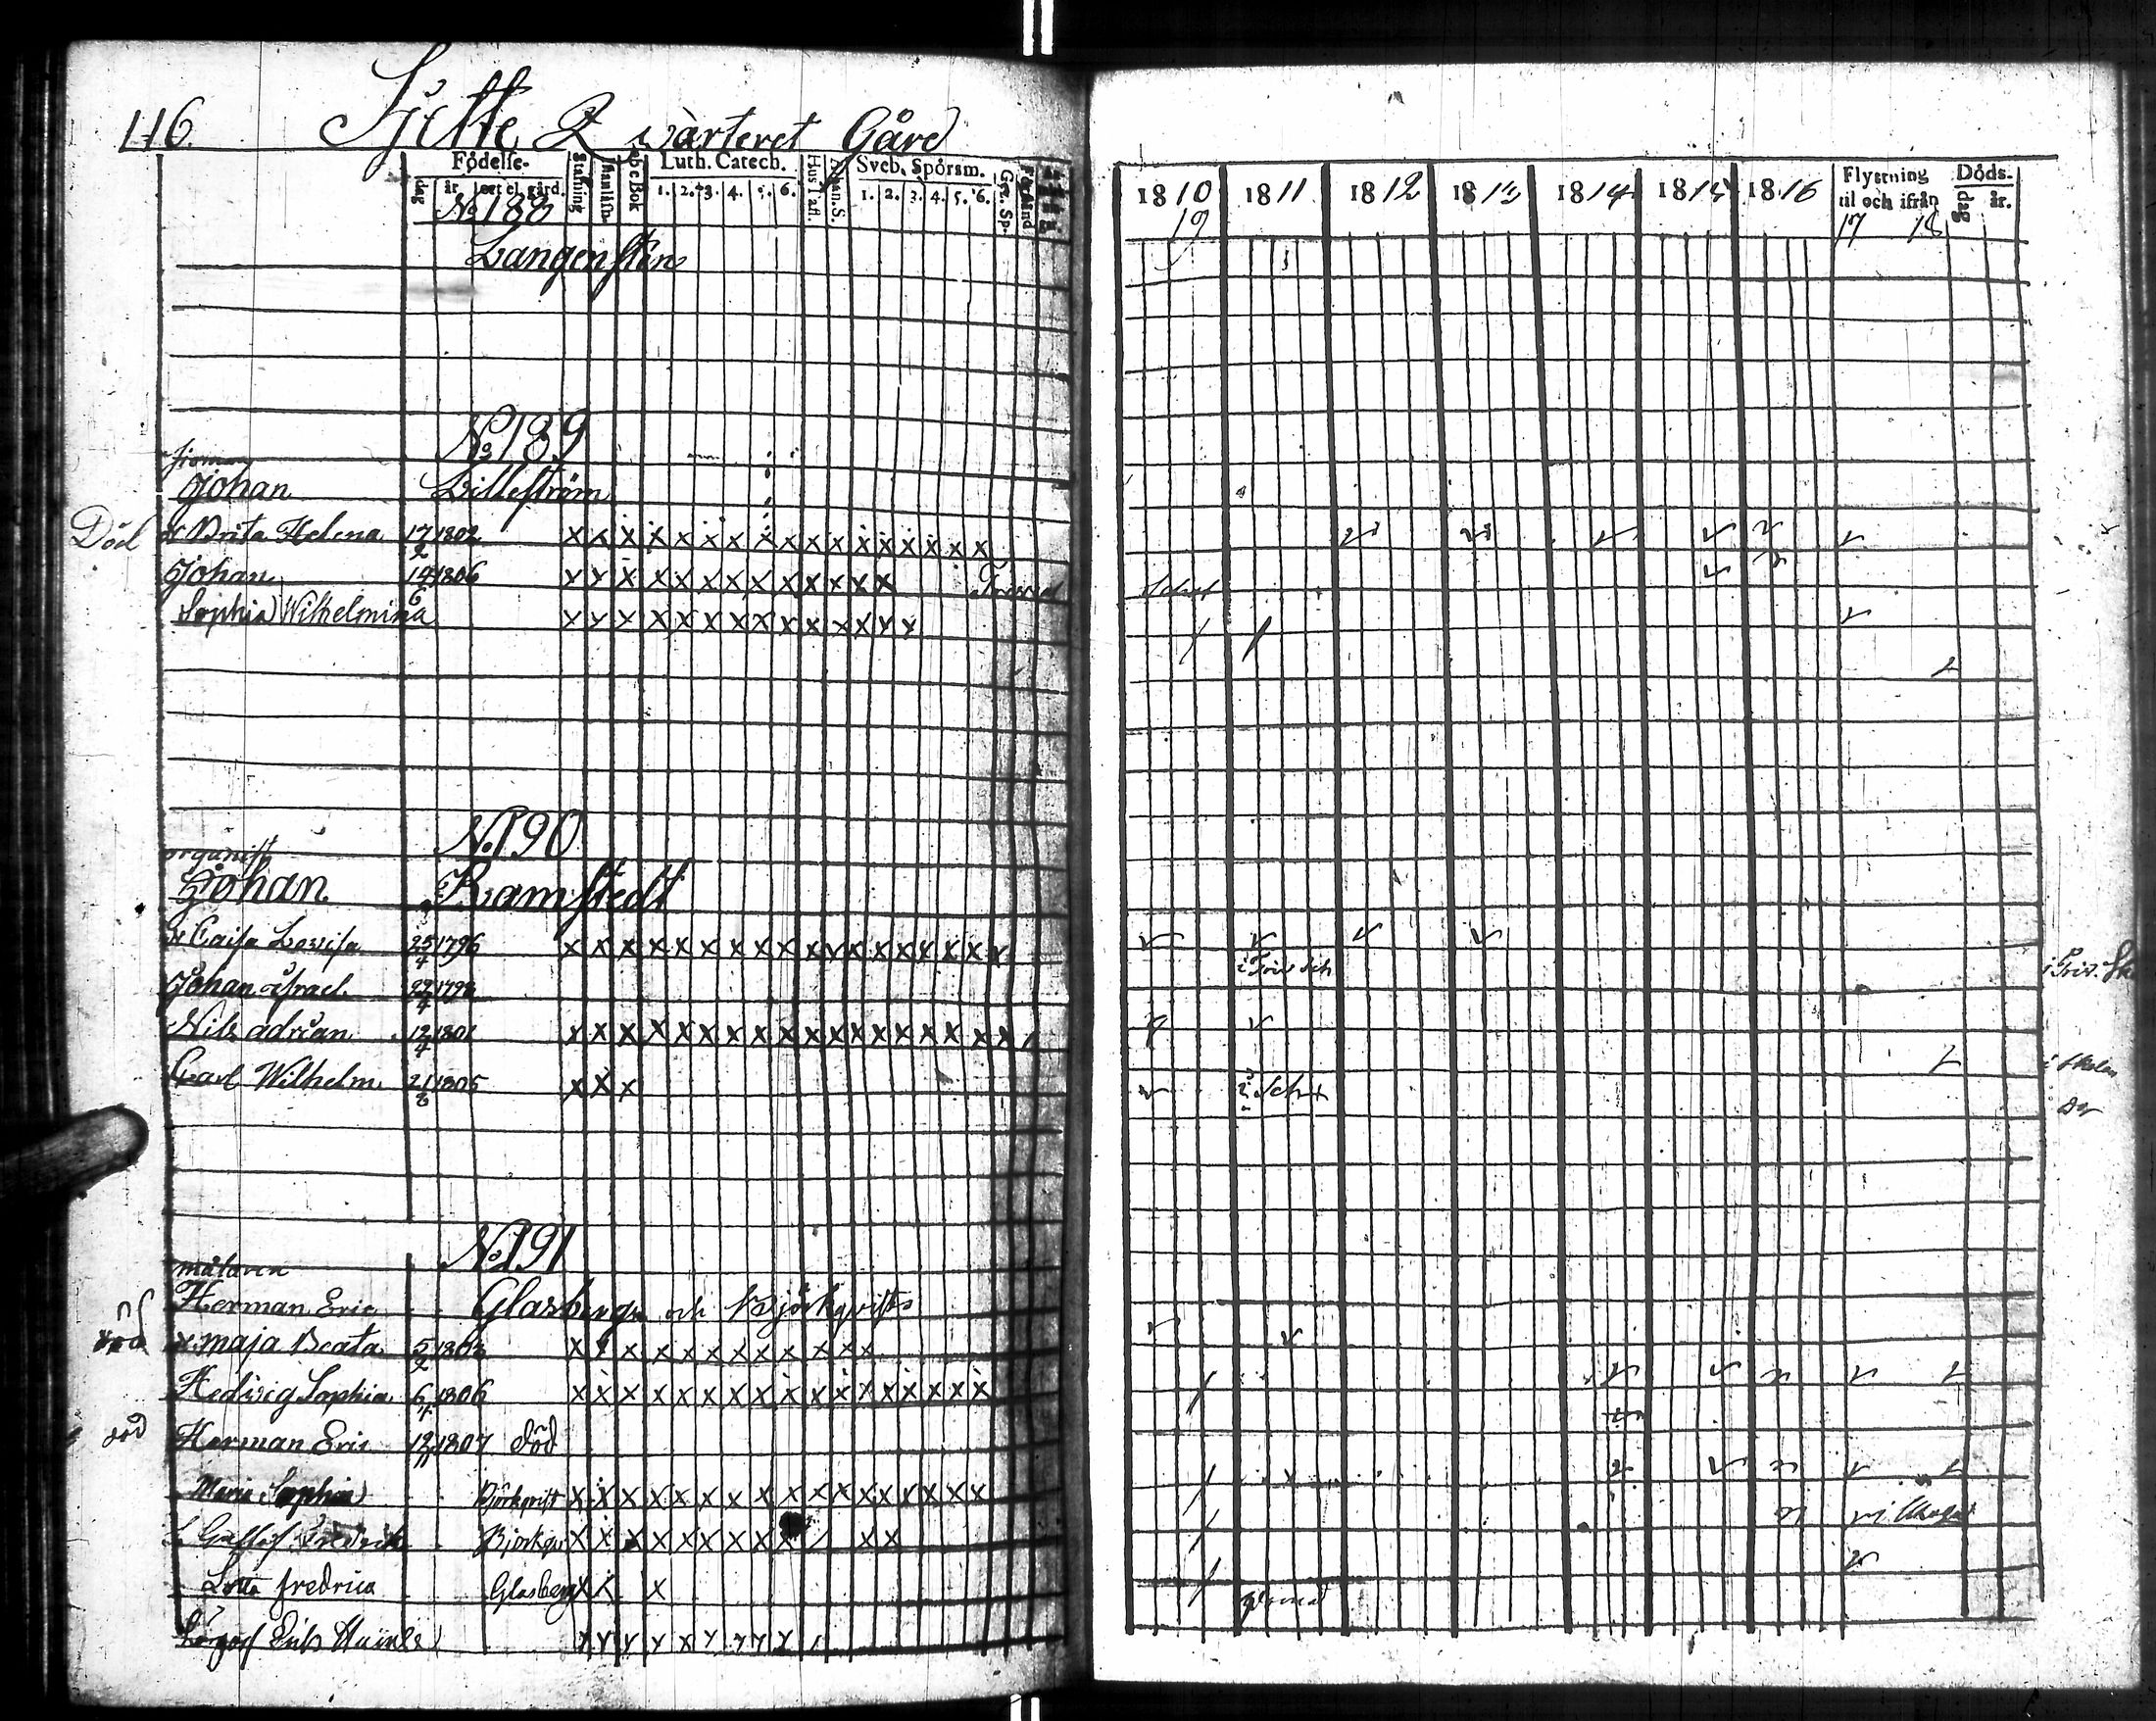 116. Sjette Qvarteret Gård
Födelse-
dag år ort el. gård.
Stafning
Abc Bok
Luth. Catech.
1. 2. 3. 4. 5. 6.
Hus Tafl.
Athan. S.
Sveb. Spörsm.
1. 2. 3. 4. 5. 6.
Grz. Sp.
Förstånd
1810 1811 1812 1813 1814 1815 1816 Flyttning til och ifrån Döds- dag år.
19 17 18
No 188
Langensten
No 189
Johan Lilleström
Död Brita Helena 17/2 1802 x x x x x x x x x x x x x x x x
Johan 14/6 1806 x x x x x x x x x x x x
Sophia Wilhelmina x x x x x x x x x x x x x
No 190
organist
Johan Ramstedt
Caisa Lovisa 25/4 1796 x x x x x x x x x x x x x x x x x
i Triv Sch i Triv. Sk
Johan Israel 1798
Nils adrian 12/4 1801 x x x x x x x x x x x x x x x x x
i Skolan
Carl Wilhelm 21/8 1805 x x x
i Sch
No 191
målaren
Herman Eric Glasberg och Björkqvist
död maja Beata 5/2 1803 x x x x x x x x x x x x
Hedvig Sophia 6/4 1806 x x x x x x x x x x x x x x x x
död Herman Eric 12/11 1807 död
Maria Sophia Björkqvist x x x x x x x x x x x x x x x x
Gustaf Fredrik Björkqv x x x x x x x x x x x
Lotta fredrica Glasberg x x x